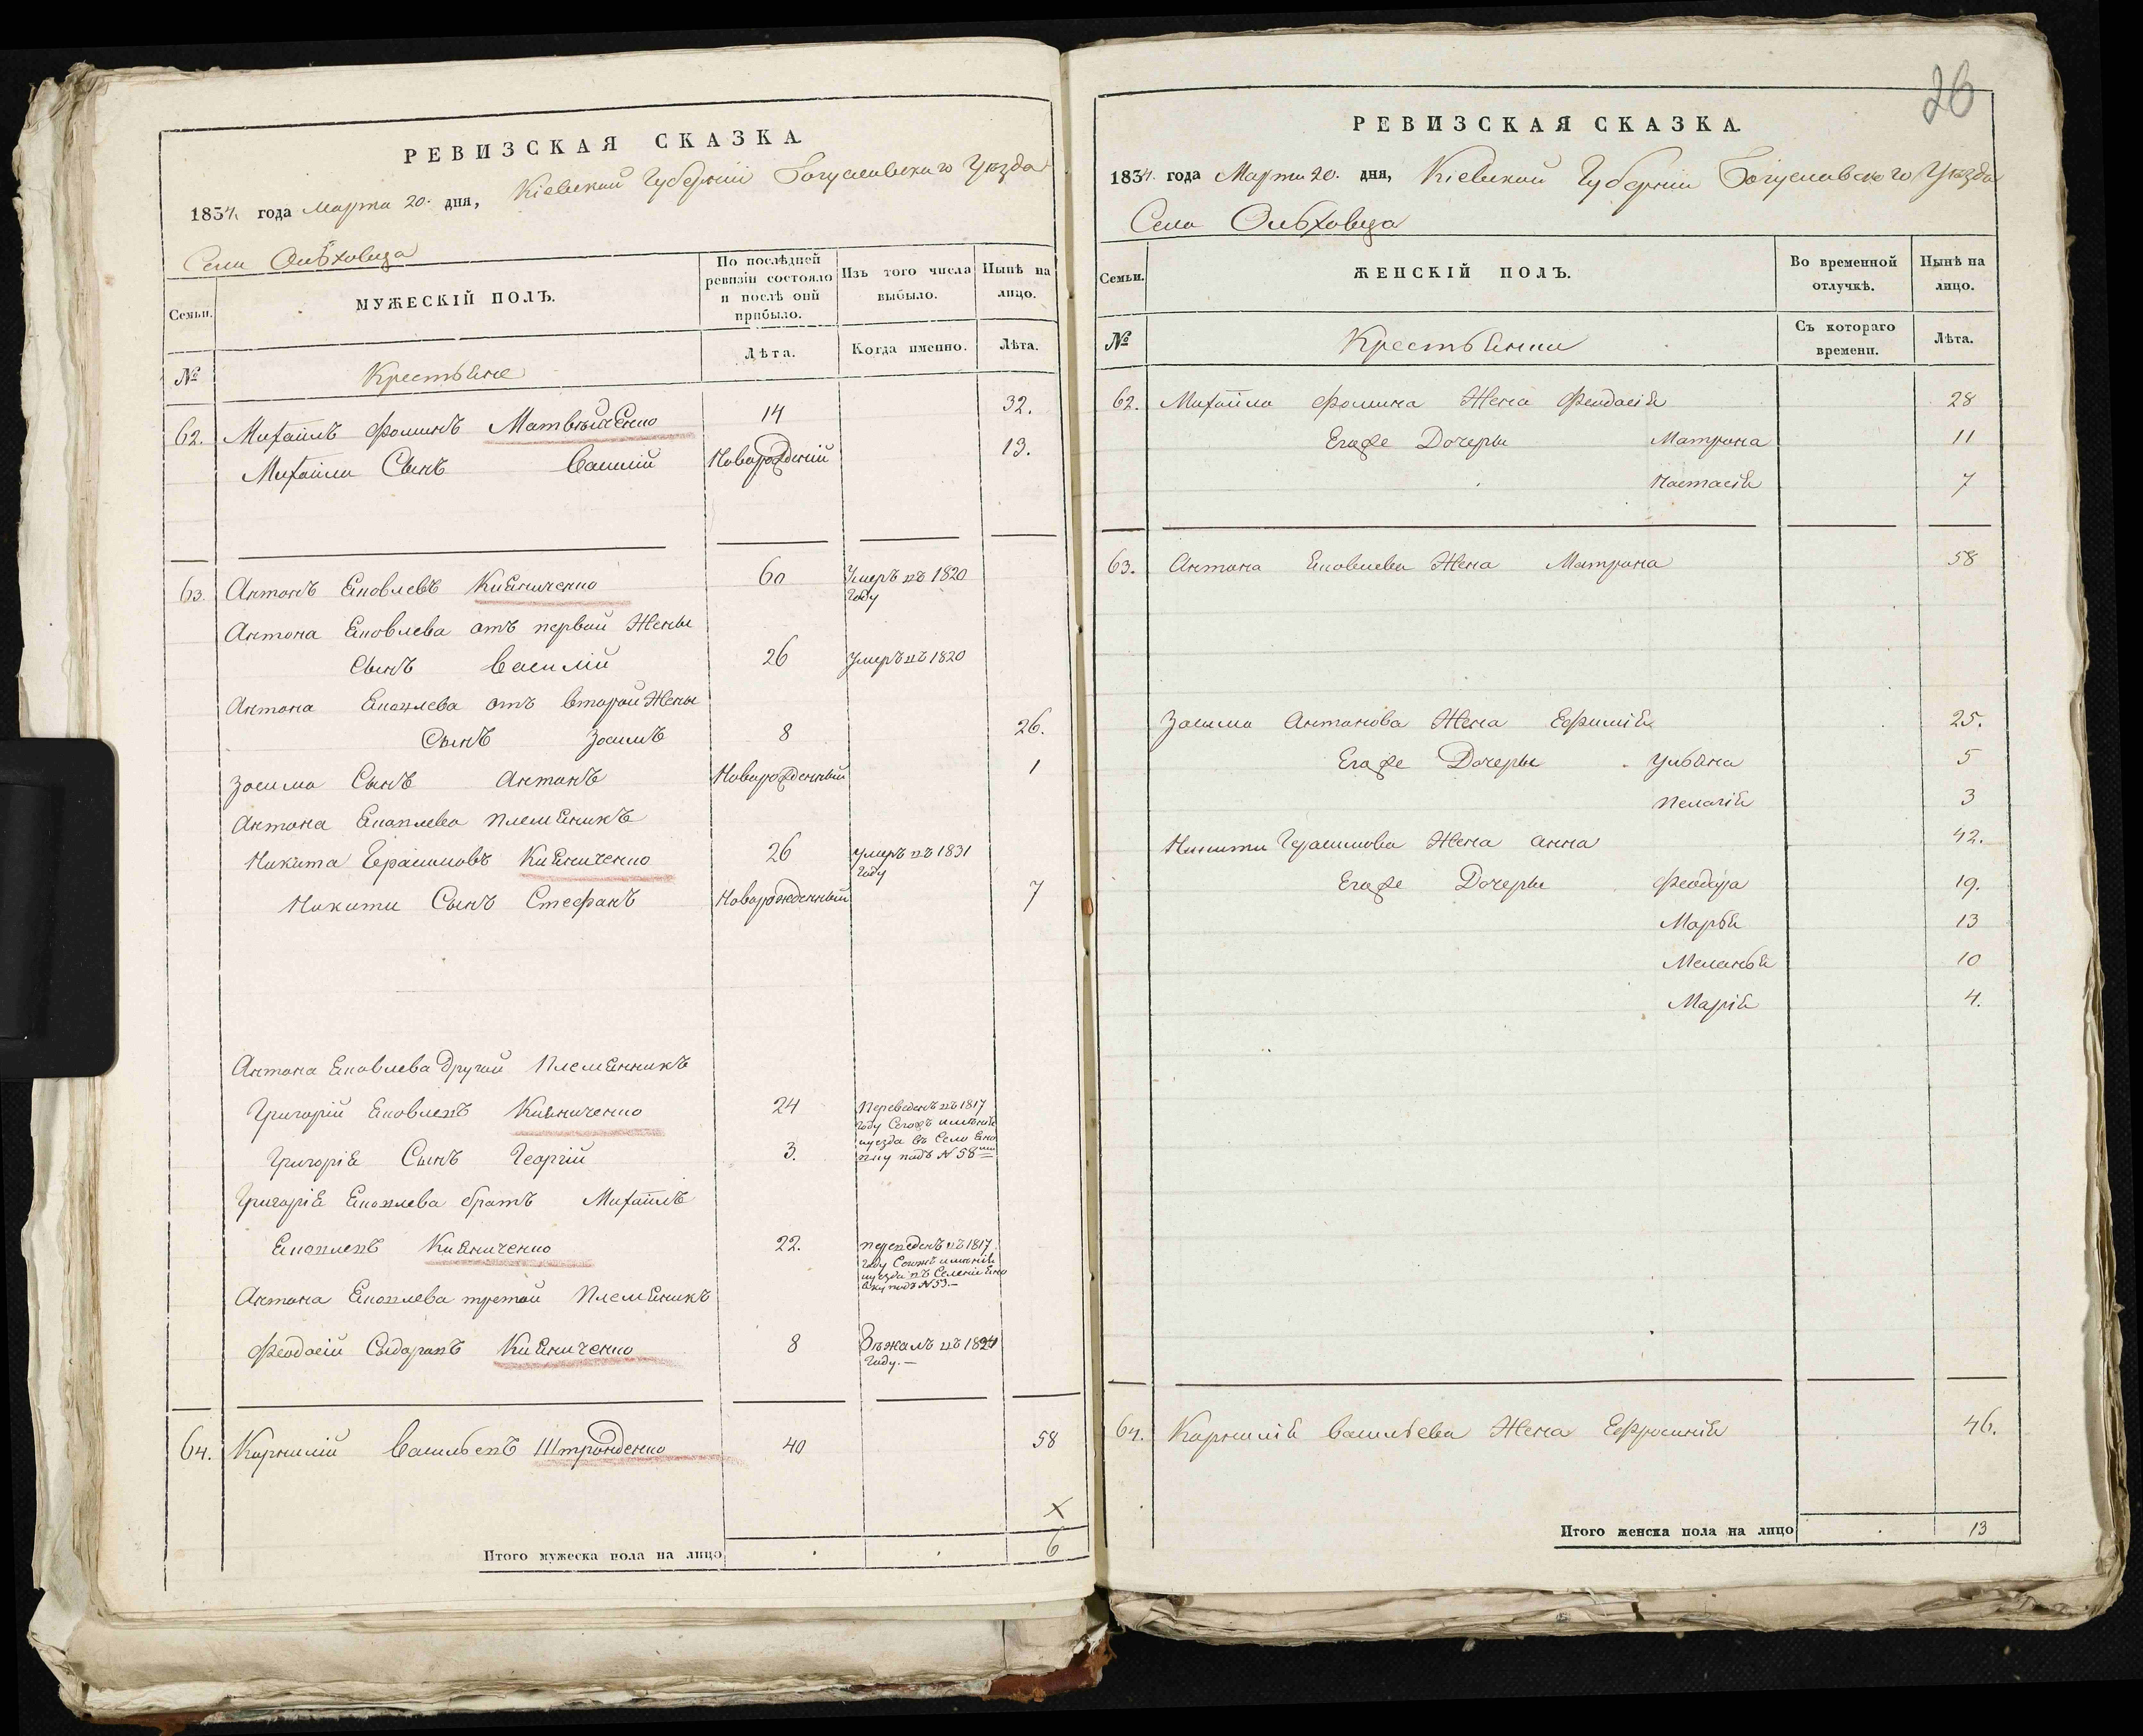 РЕВИЗСКАЯ СКАЗКА
1834. года Марта 20. дня, Кіевской Губерніи Богуславскаго Уѣзда
Села Ольховца
Семьи.
МУЖЕСКІЙ ПОЛЪ.
По послѣдней ревизіи состояло и послѣ оной прибыло.
Изъ того числа выбыло.
Нынѣ на лицо.
№
Крестьяне
Лѣта.
Когда именно.
Лѣта.
62. Михаилъ Фоминъ Матвѣйченко 14 32.
Михайла Сынъ Василій Новорожденій 13.
63. Антонъ Яковлевъ Кияниченко 60 Умеръ въ 1820
году
Антона Яковлева отъ первой Жены
Сынъ Василій 26 Умеръ въ 1820
Антона Яковлева отъ второй Жены
Сынъ Зосимъ 8 26.
Зосима Сынъ Антонъ Новорожденный 1
Антона Яковлева племяникъ
Никита Герасимовъ Кияниченко 26 умеръ въ 1831
году
Никиты Сынъ Стефанъ Новорожденный 7
Антона Яковлева другой Племянникъ
Григорій Яковлевъ Кияниченко 24 Переведенъ въ 1817
году
Григорія Сынъ Георгій 3. подъ N 58
Григорія Яковлева братъ Михаилъ
Яковлевъ Кияниченко 22. переведенъ въ 1817
году
подъ N 53.—
Антона Яковлева третій Племяникъ
Феодосій Сыдоровъ Кияниченко 8 Бѣжалъ въ 1824
году.—
64. Корнилій Васильевъ 40 58
х
Итого мужеска пола на лицо . . 6
26
РЕВИЗСКАЯ СКАЗКА.
1834. года Марта 20. дня, Кіевской Губерніи Богуславскаго Уѣзда
Села Ольховца
Семьи.
ЖЕНСКІЙ ПОЛЪ.
Во временной отлучкѣ.
Нынѣ на лицо.
№
Крестьянки
Съ котораго времени.
Лѣта.
62. Михайла Фомина Жена Феодосія 28
Егоже Дочеры Матрона 11
Настасія 7
63. Антона Яковлева Жена Матрона 58
Зосима Антонова Жена Ефимія 25.
Егоже Дочеры Ульяна 5
Пелагія 3
Никиты Герасимова Жена Анна 42.
Егоже Дочеры Феодора 19.
Марья 13
Меланья 10
Марія 4.
64. Корнилія Васильева Жена Ефросинія 46.
Итого женска пола на лицо . 13